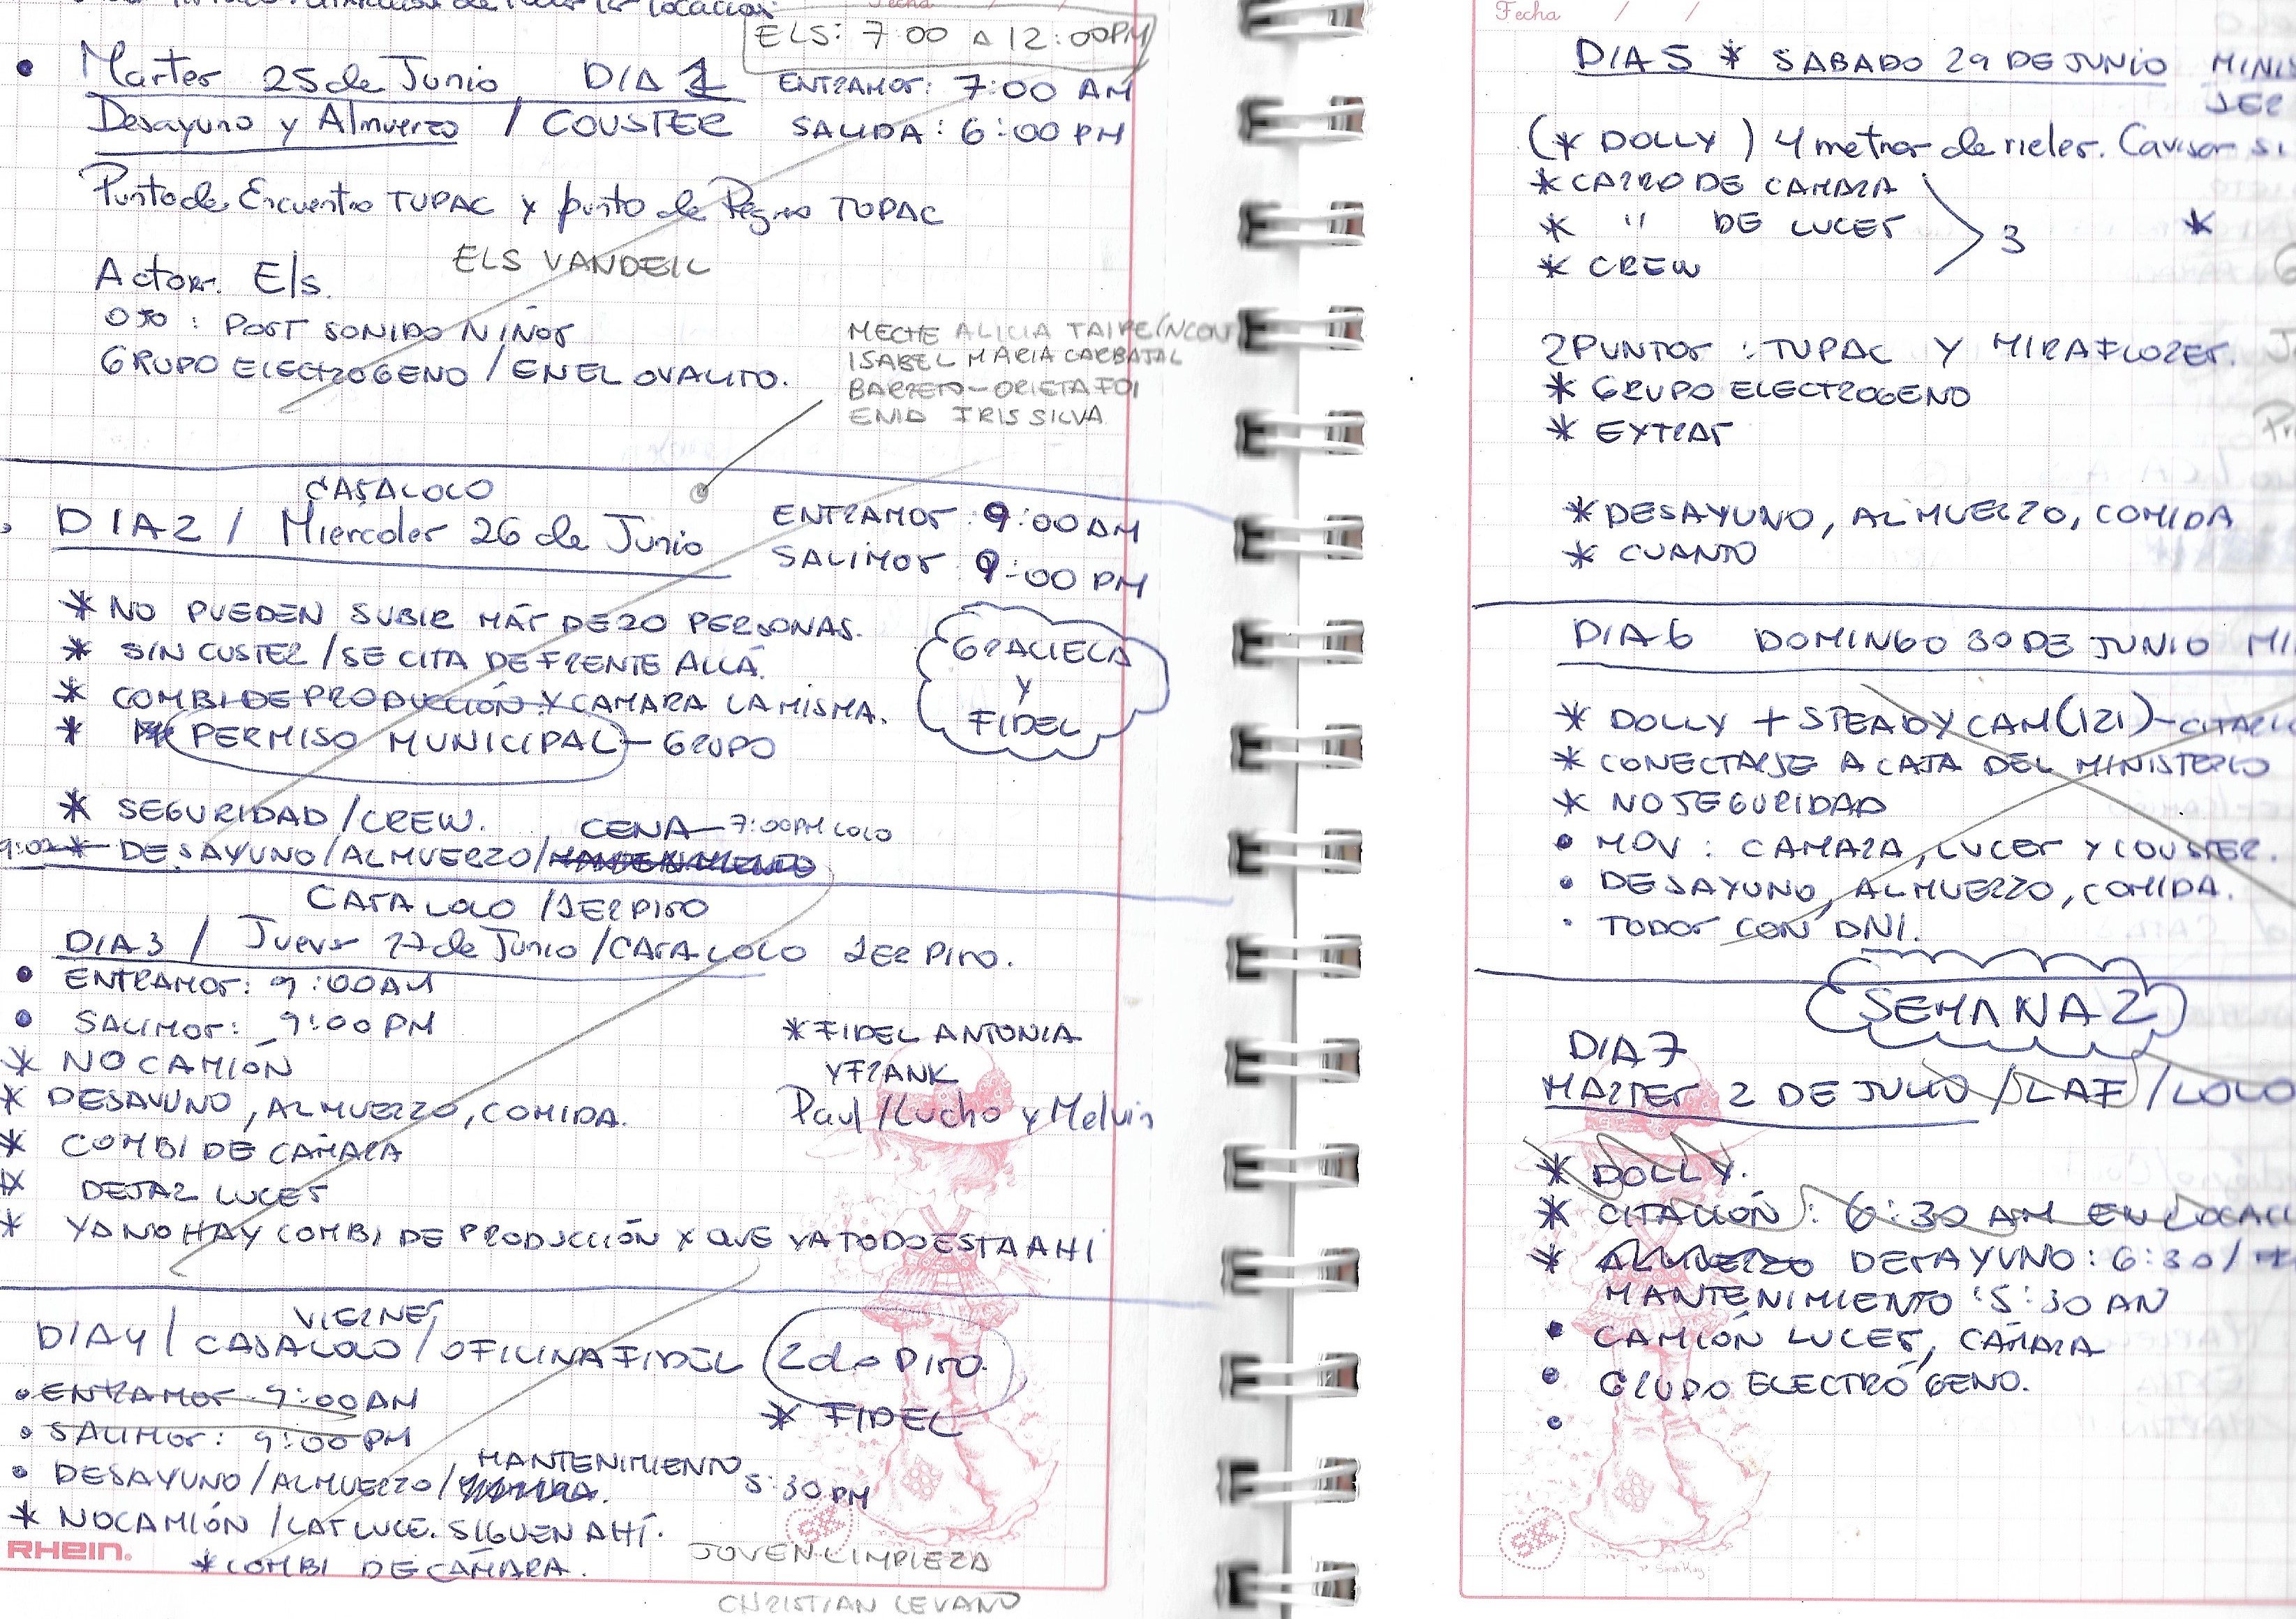 ELS: 7:00 A 12:00PM
• Martes 25 de Junio DIA 1 ENTRAMOS: 7:00 AM
Desayuno y Almuerzo / COUSTER SALIDA: 6:00 PM
Punto de Encuentro TUPAC y punto de Regreso TUPAC
ELS VANDEIL
Actores. Els.
OJO: POST SONIDO NIÑOS
GRUPO ELECTROGENO / EN EL OVALITO.
MECHE ALICIA TAIPE
ISABEL MARIA CARBAJAL
BARRETO - ORIETA FOI
ENID IRIS SILVA
CASA LOLO
DIA 2 / Miercoles 26 de Junio ENTRAMOS: 9:00 AM
SALIMOS 9:00 PM
* NO PUEDEN SUBIR MÁS DE 20 PERSONAS.
* SIN CUSTER / SE CITA DE FRENTE ALLÁ.
* COMBI DE PRODUCCIÓN Y CAMARA LA MISMA.
* PERMISO MUNICIPAL - GRUPO
GRACIELA
Y
FIDEL
* SEGURIDAD / CREW.
CENA - 7:00PM LOLO
* DESAYUNO / ALMUERZO / MANTENIMIENTO
CASA LOLO / 1ER PISO
DIA 3 / Jueves 27 de Junio / CASA LOLO 1ER PISO.
• ENTRAMOS: 9:00 AM
• SALIMOS: 9:00 PM
* NO CAMIÓN
* DESAYUNO, ALMUERZO, COMIDA.
* COMBI DE CAMARA
* DEJAR LUCES
* YA NO HAY COMBI DE PRODUCCIÓN X QUE YA TODO ESTA AHI
* FIDEL ANTONIA
Y FRANK
Paul / Lucho y Melvin
VIERNES
DIA 4 / CASA LOLO / OFICINA FIDEL 2do PISO.
* FIDEL
• ENTRAMOS 9:00 AM
• SALIMOS: 9:00 PM
MANTENIMIENTO
• DESAYUNO / ALMUERZO / 5:30 PM
* NO CAMIÓN / LAS LUCE. SIGUEN AHÍ.
* COMBI DE CAMARA.
RHEIN.
JOVEN LIMPIEZA
CHRISTIAN LEVANO
Fecha / /
DIA 5 * SABADO 29 DE JUNIO MINIS
JER
(* DOLLY) 4 metros de rieles. (avisar si
* CARRO DE CAMARA
* " DE LUCES
* CREW
3
*
2 PUNTOS: TUPAC Y MIRAFLORES.
* GRUPO ELECTROGENO
* EXTRAS
* DESAYUNO, ALMUERZO, COMIDA
* CUANTO
DIA 6 DOMINGO 30 DE JUNIO MI
* DOLLY + STEADYCAM (IZI) - CITARL
* CONECTARSE A CAJA DEL MINISTERIO
* NO SEGURIDAD
• MOV: CAMARA, LUCES Y COUSTER.
• DESAYUNO, ALMUERZO, COMIDA.
• TODOS CON DNI.
SEMANA 2
DIA 7
MARTES 2 DE JULIO / LAF / LOLO
* DOLLY.
* CITACIÓN: 6:30 AM EN LOCACI
* ALMUERZO DESAYUNO: 6:30 /
MANTENIMIENTO: 5:30 AM
• CAMIÓN LUCES, CAMARA
• GRUPO ELECTRÓGENO.
•